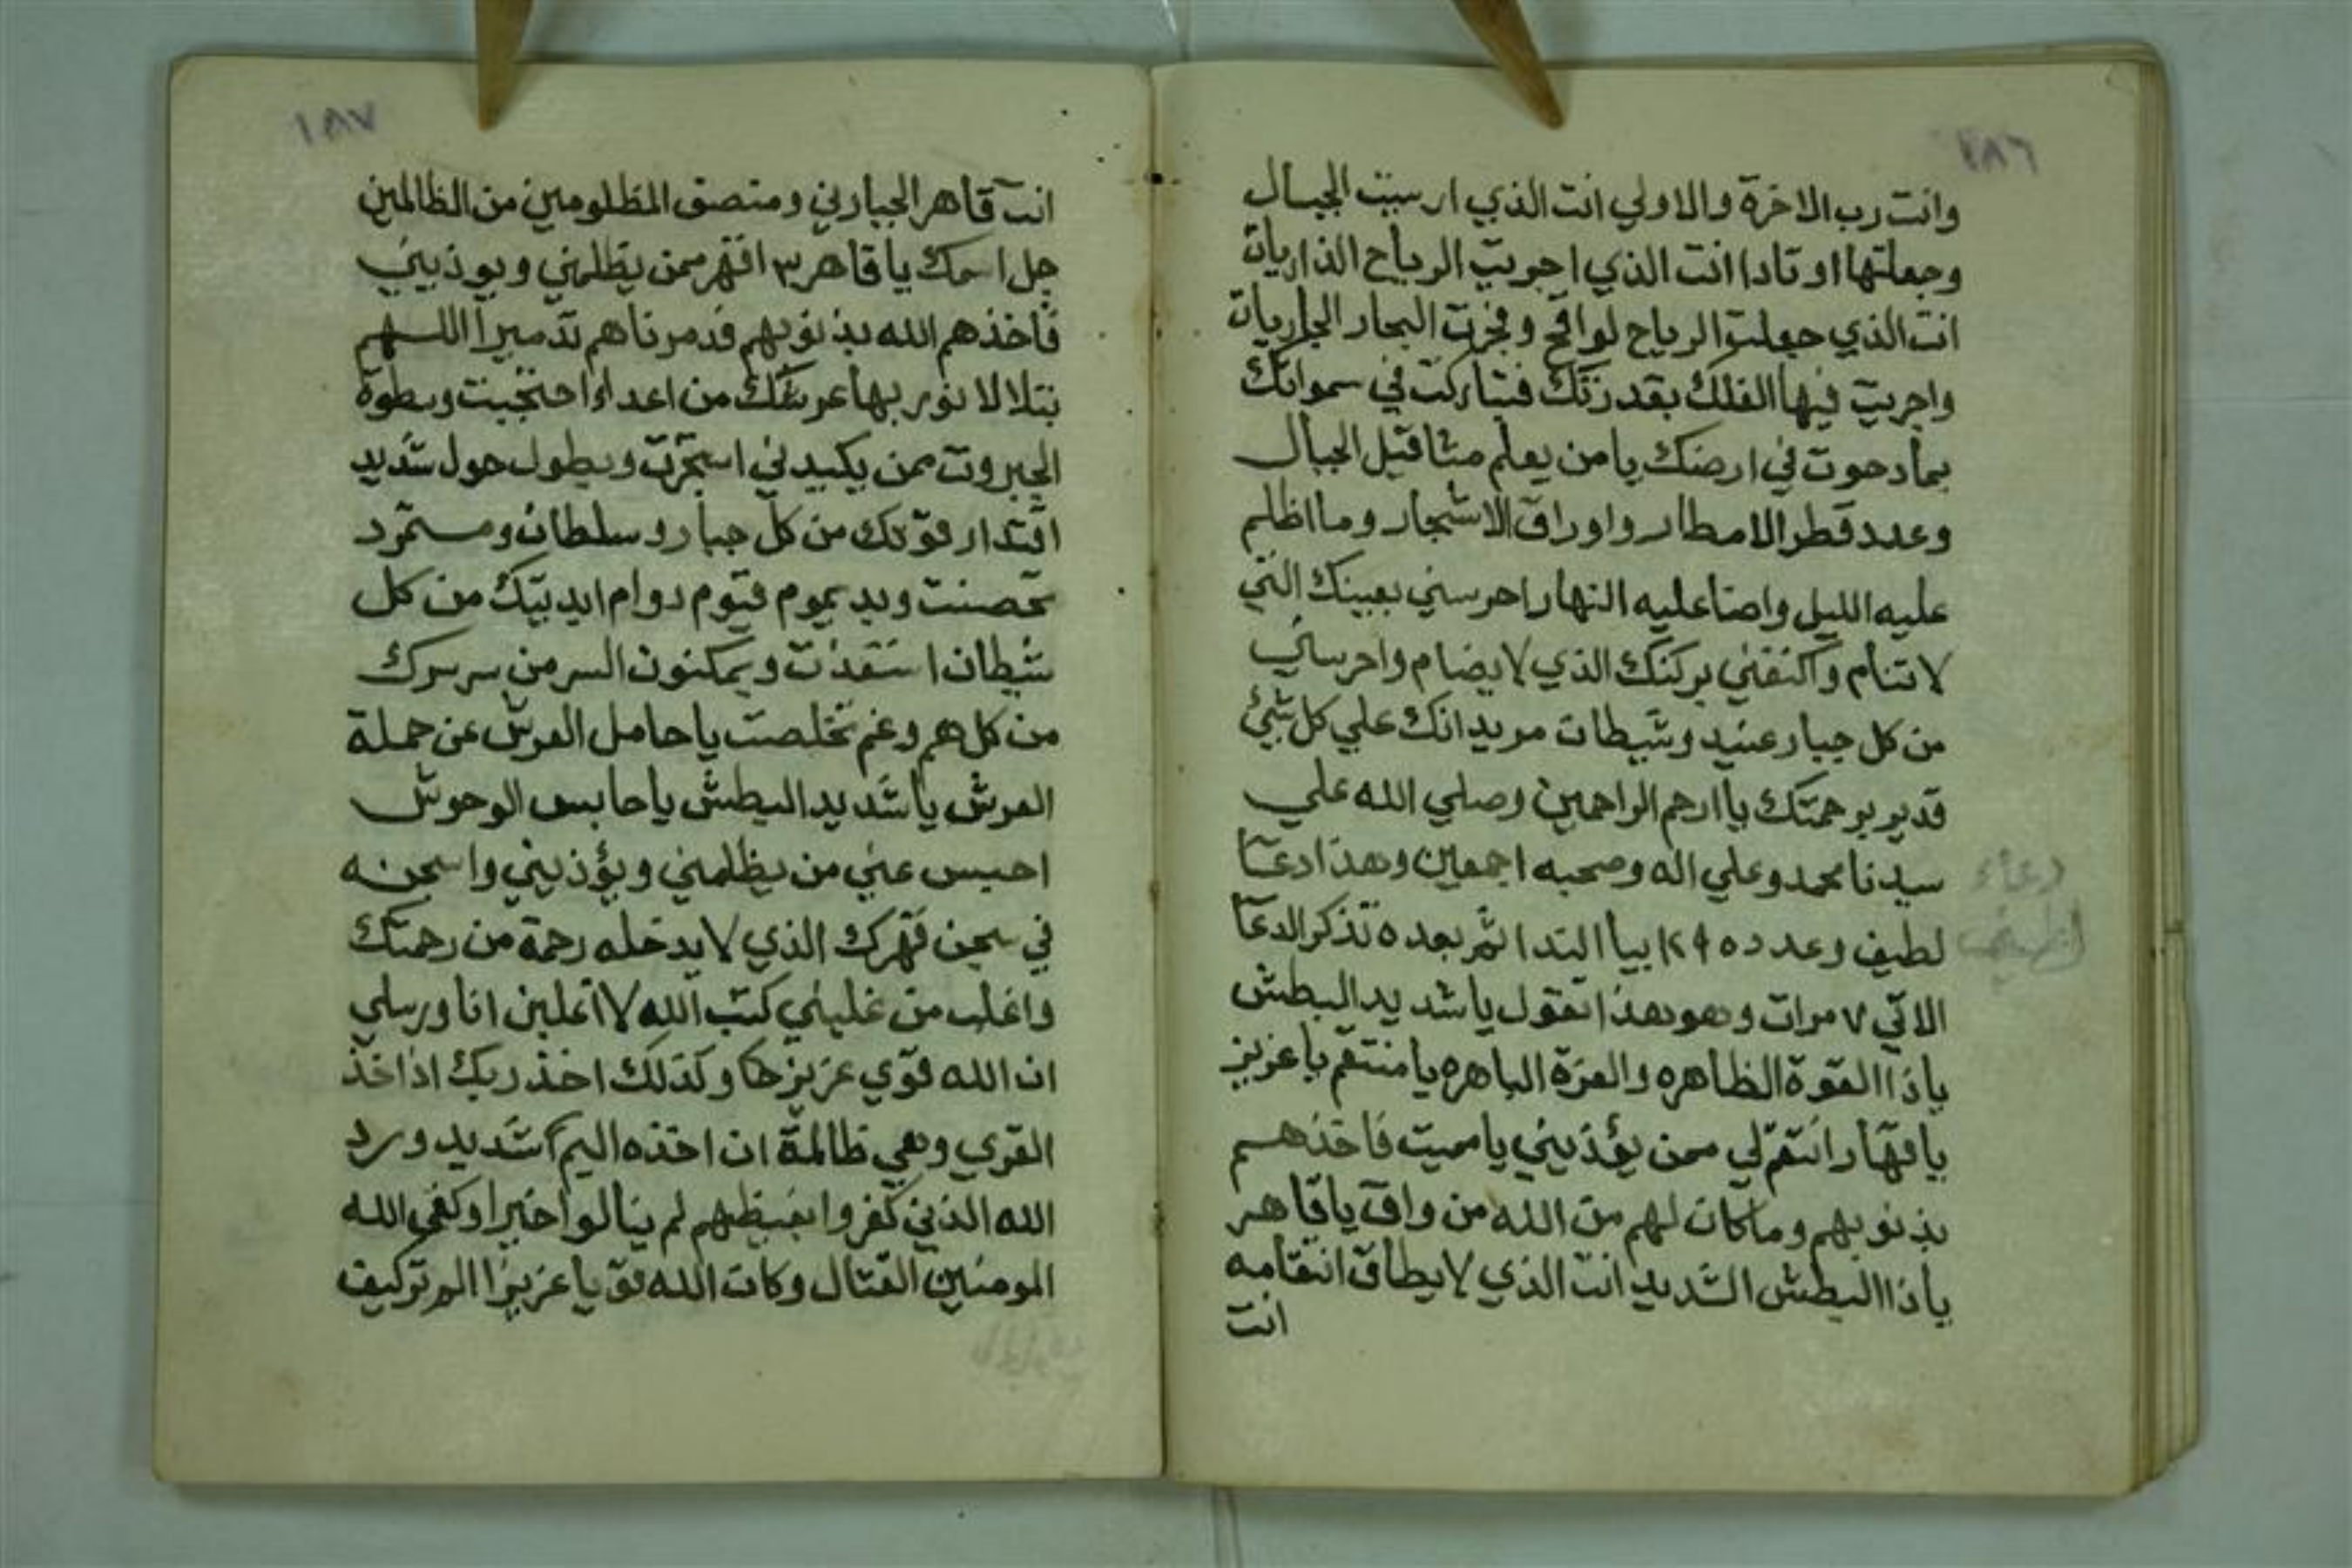 ١٨٦
وانت رب الاخرة والاولي انت الذي ارسيت الجبال
وجعلتها اوتادا انت الذي اجريت الرياح الذاريات
انت الذي جعلت الرياح لواقح وفجرت البحار الجاريات
واجريت فيها الفلك بقدرتك فتباركت في سمواتك
بمادحوت في ارضك يا من يعلم مثاقيل الجبال
وعدد قطر الامطار واوراق الاشجار وما اظلم
عليه الليل واضا عليه النهار احرسني بعينك التي
لا تنام واكنفني بركنك الذي لا يضام واحرسني
من كل جبار عنيد وشيطان مريد انك علي كل شيئ
قدير برحمتك يا ارحم الراحمين وصلي الله علي
سيدنا محمد وعلي اله وصحبه اجمعين وهذا دعآ
دعاء
لطيف
لطيف وعدده ١٢٩ بيا الندا ثم بعده تذكر الدعآ
الاتي ٧ مرات وهو هذا تقول يا شديد البطش
ياذا القوة الظاهره والعزة الباهره يا منتقم يا عزيز
يا قهار انتقم لي ممن يؤذيني يا مميت فاخذهم
بذنوبهم وما كان لهم من الله من واق يا قاهر
ياذا البطش الشديد انت الذي لا يطاق انتقامه
انت
١٨٧
انت قاهر الجبارين ومنصف المظلومين من الظالمين
جل اسمك يا قاهر ٣ اقهر ممن يظلمني ويوذيني
فاخذهم الله بذنوبهم فدمرناهم تدميرا اللهم
بتلالا نور بها عرشك من اعداء احتجبت وبسطوة
الجبروت ممن يكيدني استجرت وبطول حول شديد
اقتدار قوتك من كل جبار وسلطان ومستمرد
تحصنت وبديموم قيوم دوام ابديتك من كل
شيطان استعذت وبمكنون السر من سر سرك
من كل هم وغم تخلصت يا حامل العرش عن حملة
العرش يا شديد البطش يا حابس الوحوش
احبس عني من يظلمني ويؤذيني واسجنه
في سجن قهرك الذي لا يدخله رحمة من رحمتك
واغلب من غلبني كتب الله لا اغلبن انا ورسلي
ان الله قوي عزيز وكذلك اخذ ربك اذا اخذ
القري وهي ظالمة ان اخذه اليم شديد ورد
الله الذين كفروا بغيظهم لم ينالوا خيرا وكفي الله
المومنين القتال وكان الله قويا عزيزا الم تر كيف